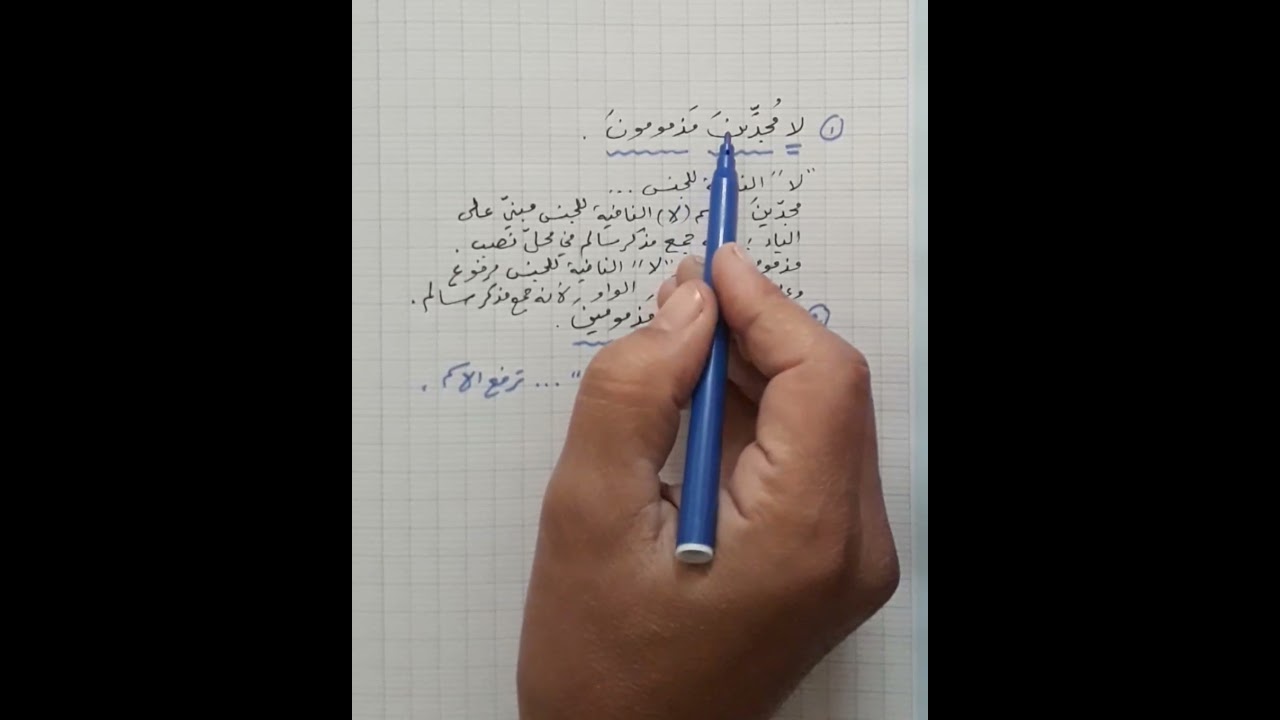 ١ لا مُجِدِّينَ مَذمومونَ .
"لا" للجنس ...
مجدّينَ (لا) النافية للجنس مبنيّ على
الياء جمع مذكر سالم في محلّ نصب .
"لا" النافية للجنس مرفوع
الواو لأنه جمع مذكر سالم .
مَذمومينَ .
... ترفع الاسم .